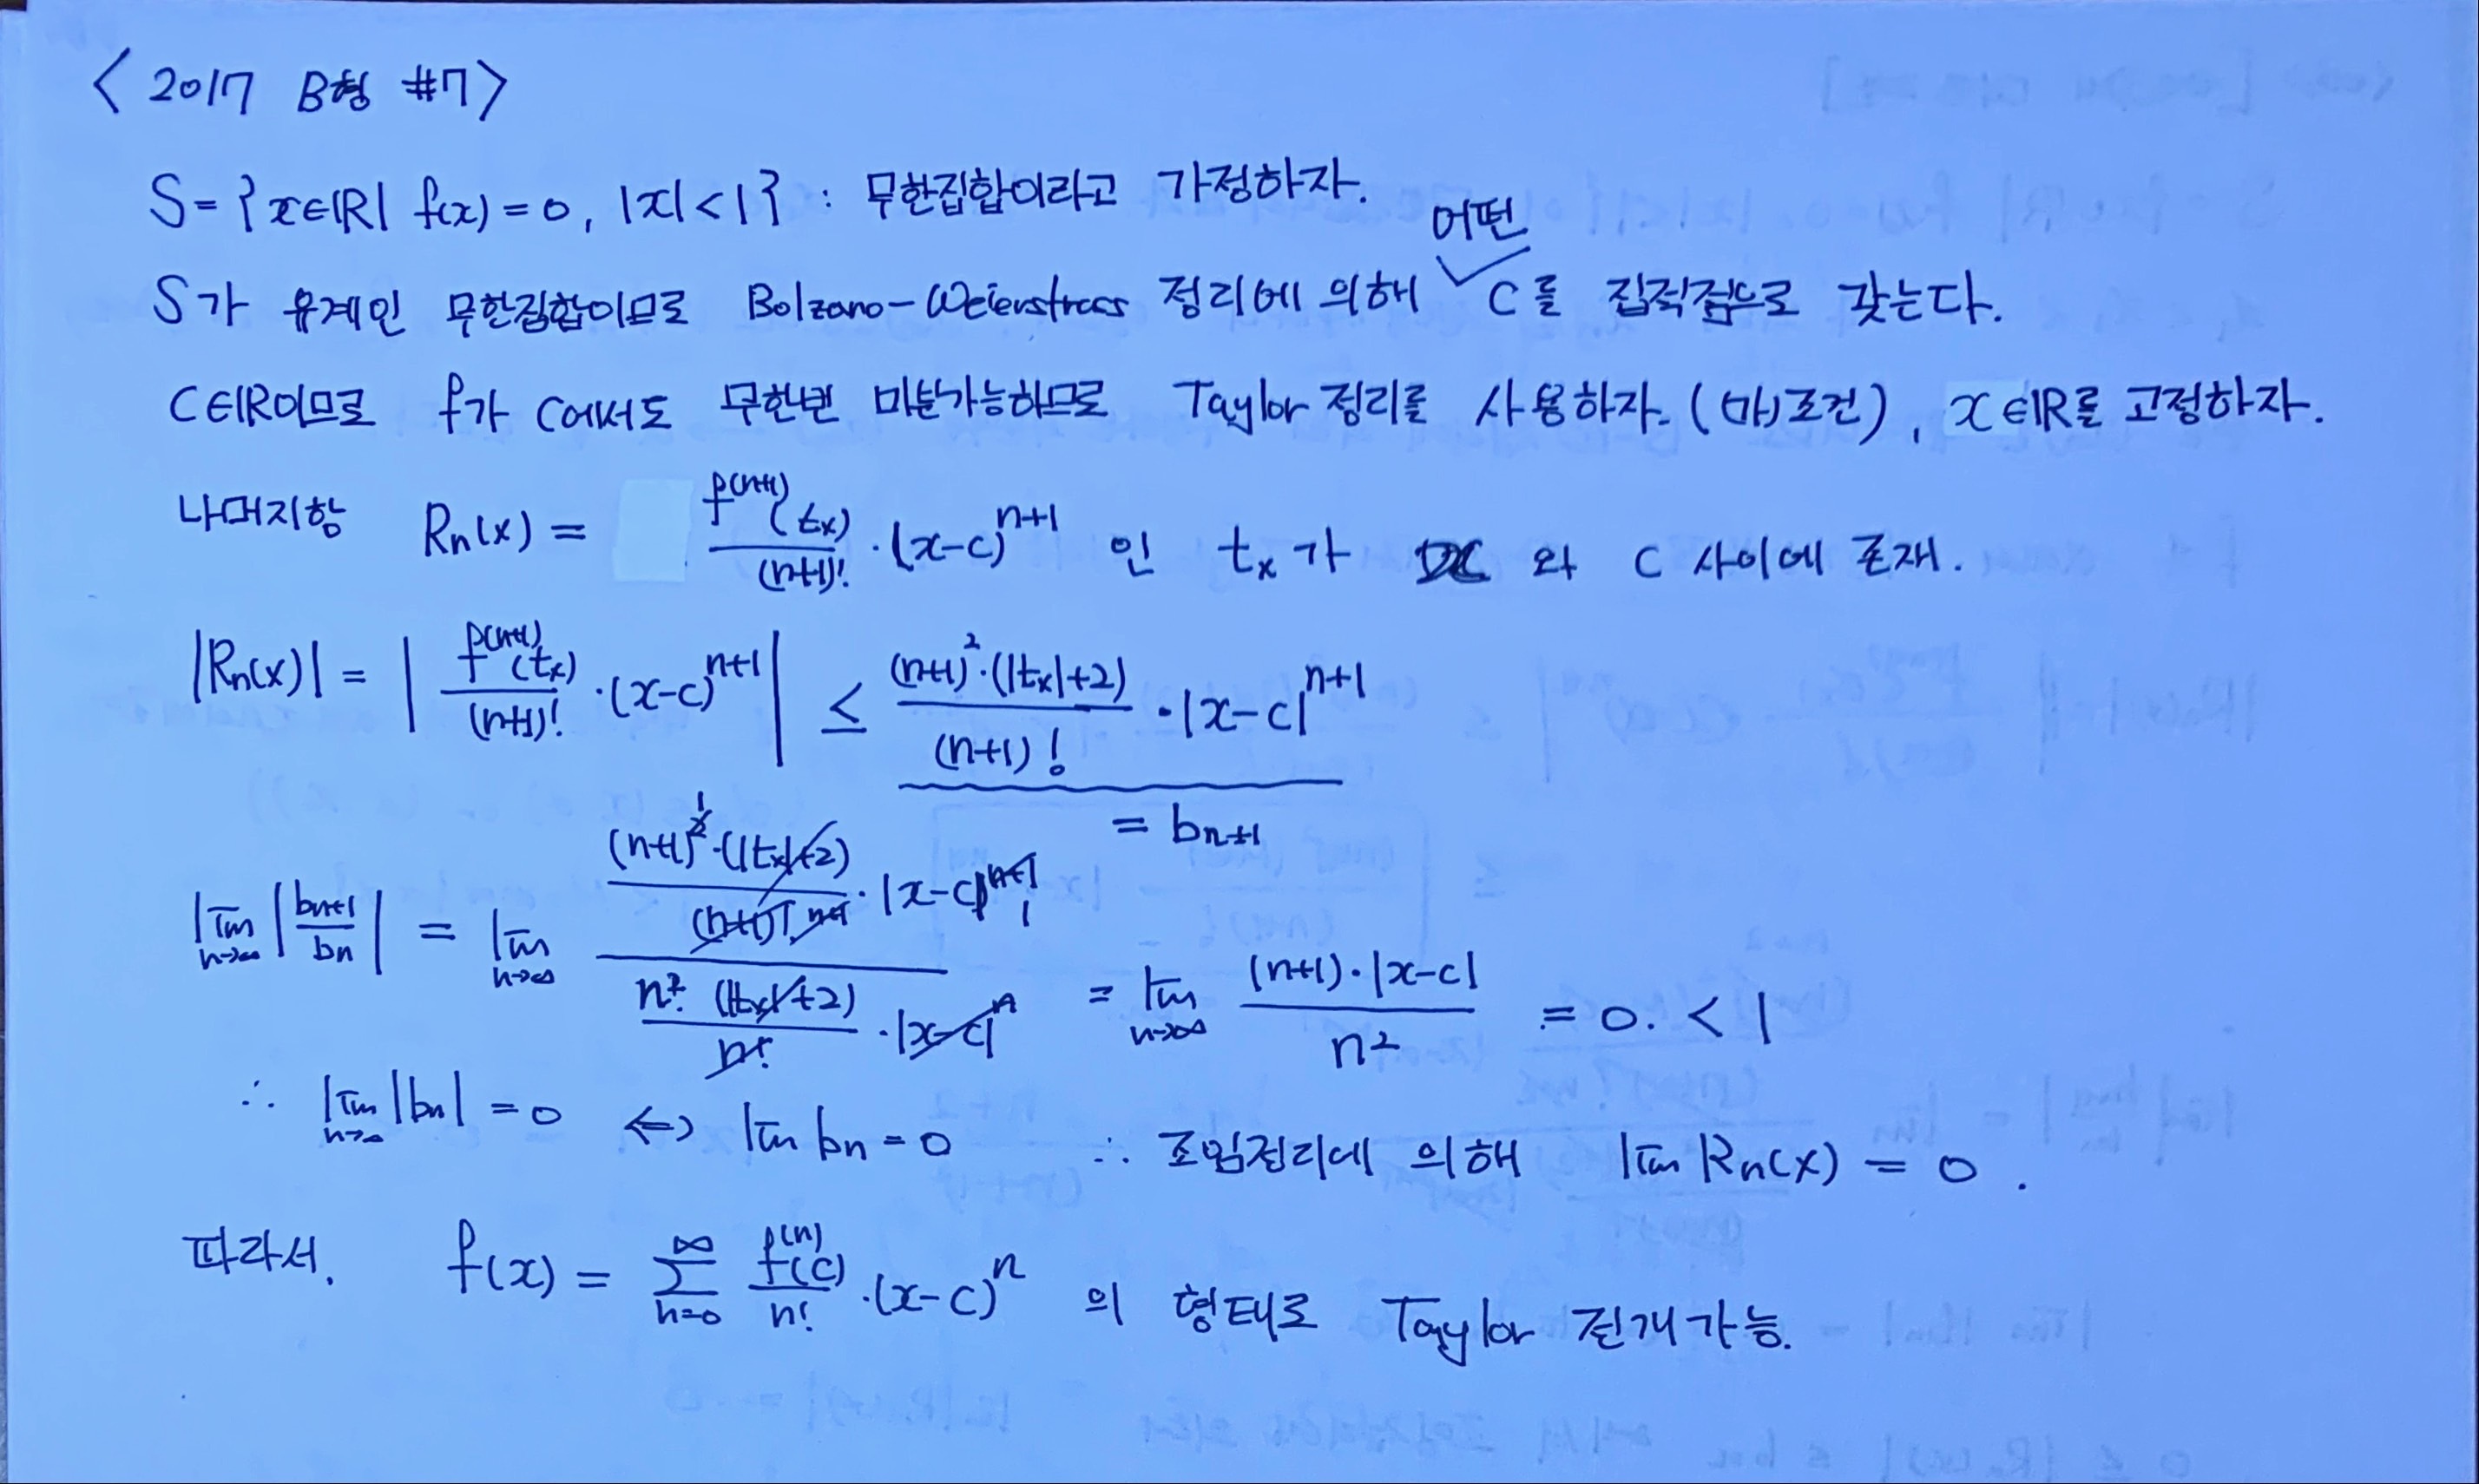 < 2017 B형 #7 >
S = {x∈ℝ | f(x) = 0, |x| < 1} : 무한집합이라고 가정하자.
S가 유계인 무한집합이므로 Bolzano-Weierstrass 정리에 의해 어떤 C를 집적점으로 갖는다.
C∈ℝ이므로 f가 C에서도 무한번 미분가능하므로 Taylor 정리를 사용하자. (마)조건), x∈ℝ를 고정하자.
나머지항 Rn(x) = f^(n+1)(tx)/(n+1)! · (x-c)^(n+1) 인 tx가 x와 C 사이에 존재.
|Rn(x)| = | f^(n+1)(tx)/(n+1)! · (x-c)^(n+1) | ≤ (n+1)²·(|tx|+2)/(n+1)! · |x-c|^(n+1)
= bn+1
lim n→∞ |bn+1/bn| = lim n→∞ ((n+1)²·(|tx|+2)/(n+1)! n+1 · |x-c|^(n+1) 1) / (n²·(|tx|+2)/n! · |x-c|^n) = lim n→∞ (n+1)·|x-c|/n² = 0. < 1
∴ lim n→∞ |bn| = 0 ⇔ lim bn = 0 ∴ 조임정리에 의해 lim Rn(x) = 0 .
따라서, f(x) = ∑ n=0 ∞ f^(n)(c)/n! · (x-c)^n 의 형태로 Taylor 전개가능.